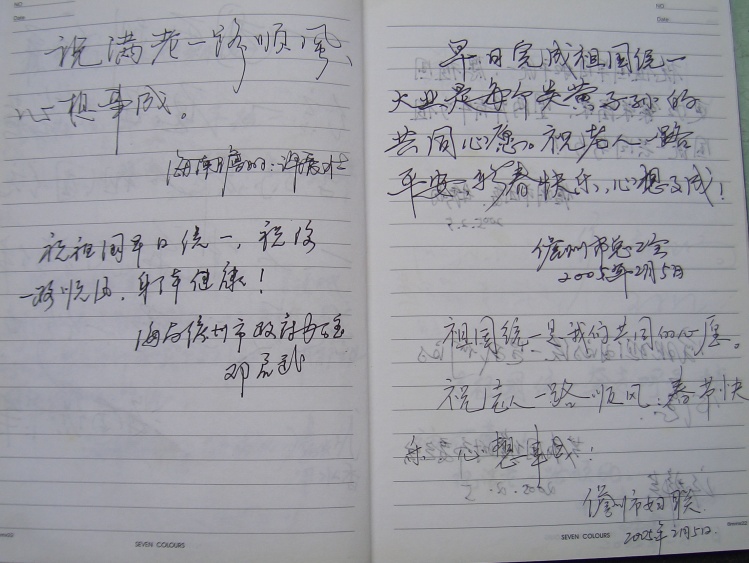 NO:
Date:
说满老一路顺风、
心想事成。
祝祖国早日统一,祝你
一路顺风,身体健康!
海南儋州市政府办
邓
SEVEN COLOURS
NO:
Date:
早日完成祖国统一
大业是每个炎黄子孙的
共同心愿。祝老人一路
平安,新春快乐,心想事成!
儋州市总工会
2005年2月5日
祖国统一是我们共同的心愿。
祝老人一路顺风,春节快
乐 心想事成!
儋州市妇联
2005年2月5日
SEVEN COLOURS